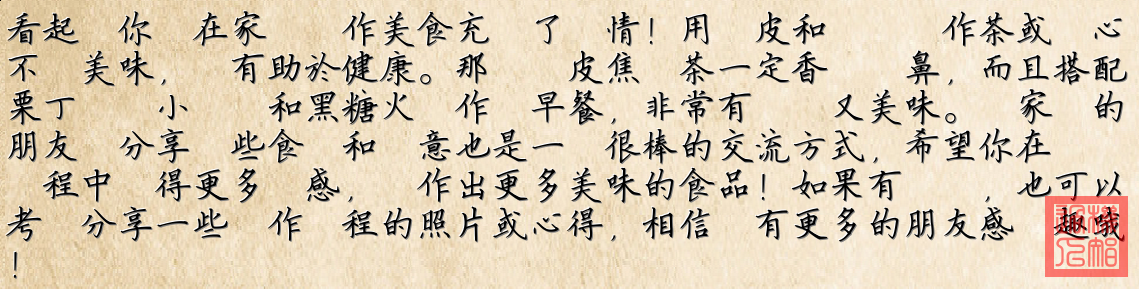 看起 你 在家 作美食充 了 情！用 皮和 作茶或 心
不 美味， 有助於健康。那 皮焦 茶一定香 鼻，而且搭配
栗丁 小 和黑糖火 作 早餐，非常有 又美味。 家 的
朋友 分享 些食 和 意也是一 很棒的交流方式，希望你在
程中 得更多 感， 作出更多美味的食品！如果有 ，也可以
考 分享一些 作 程的照片或心得，相信 有更多的朋友感 趣哦
！